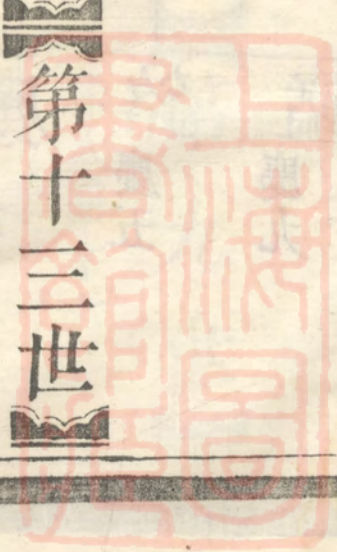 第十三世
上海圖
書館藏